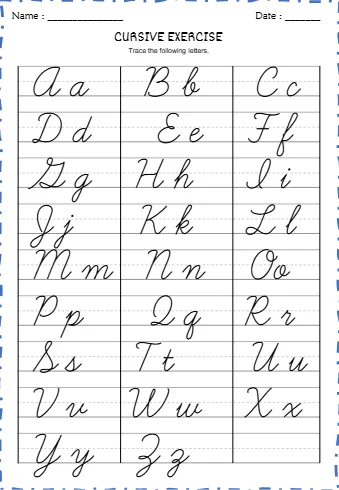 Name : _______________ Date : _______
CURSIVE EXERCISE
Trace the following letters.
A a B b C c
D d E e F f
G g H h I i
J j K k L l
M m N n O o
P p Q q R r
S s T t U u
V v W w X x
Y y Z z